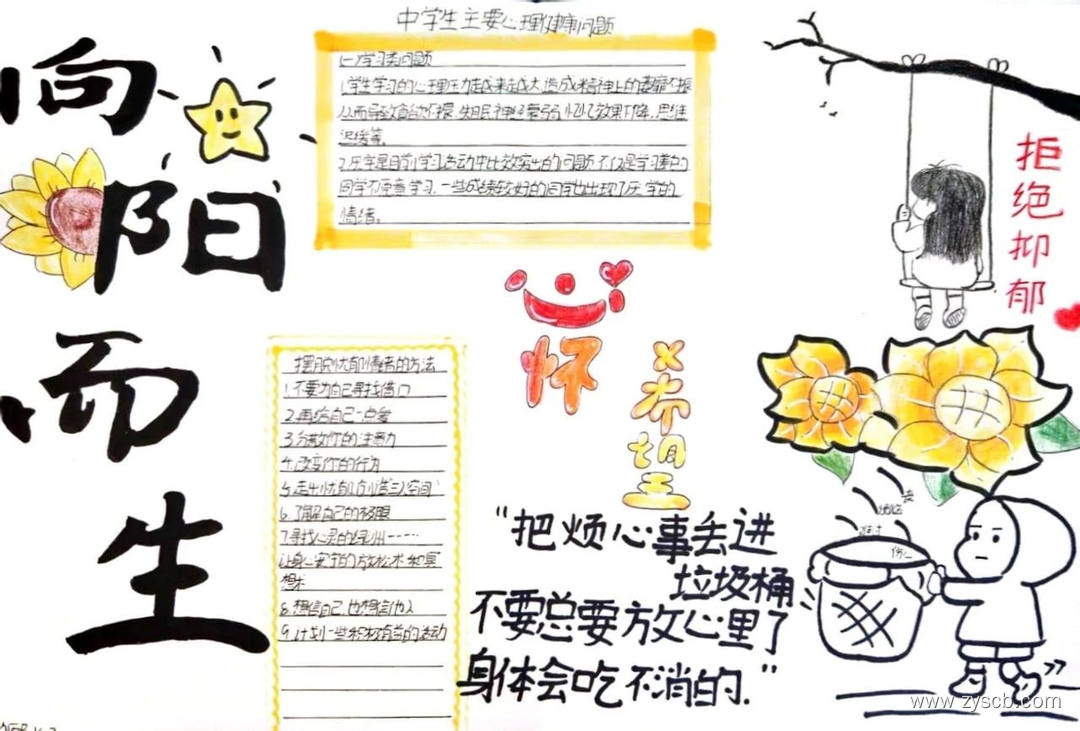 向
阳
而
生
中学生主要心理健康问题
(一)学习类问题
1.学生学习的心理压力越来越大,造成精神上的萎靡不振
从而导致食欲不振、失眠、神经衰弱、记忆效果下降、思维
迟缓等。
2.厌学是目前学习活动中比较突出的问题,不仅是学习差的
同学不愿意学习,一些成绩较好的同学也出现了厌学的
情绪。
拒
绝
抑
郁
心
怀
希
望
摆脱忧郁情绪的方法
1.不要为自己寻找借口
2.再给自己一点爱
3.分散你的注意力
4.改变你的行为
5.走出忧郁,创造三空间
6.了解自己的极限
7.寻找心灵的绿洲……
让身心安宁的放松术和冥
想术
8.相信自己,也相信他人
9.计划一些积极有益的活动
"把烦心事丢进
垃圾桶
不要总要放心里了
身体会吃不消的."
伤心
www.zyscb.com